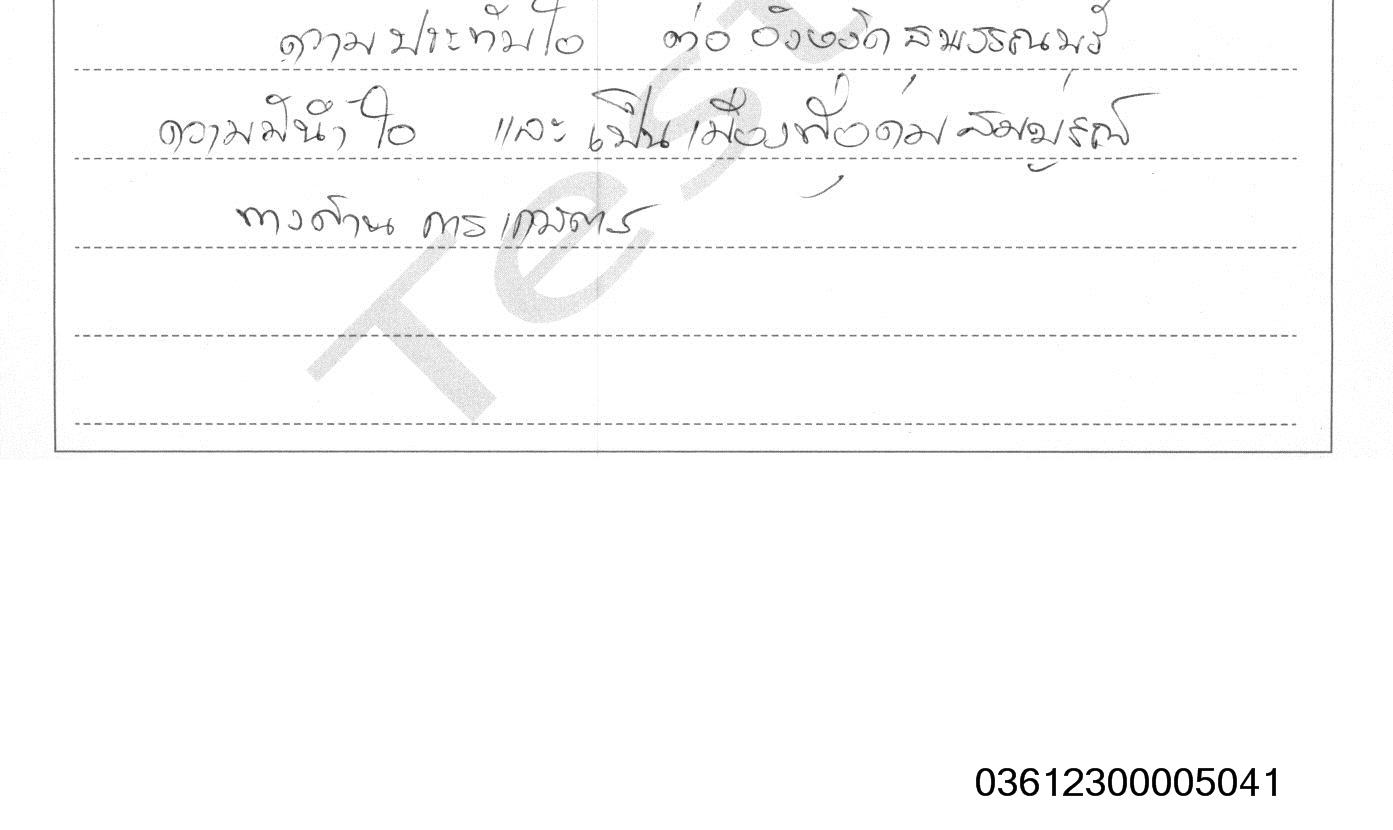 ความประทับใจ ต่อ จังหวัด สุพรรณบุรี
ความมีน้ำใจ และ เป็นเมืองที่อุดมสมบูรณ์
ทางด้าน การเกษตร
Test
03612300005041